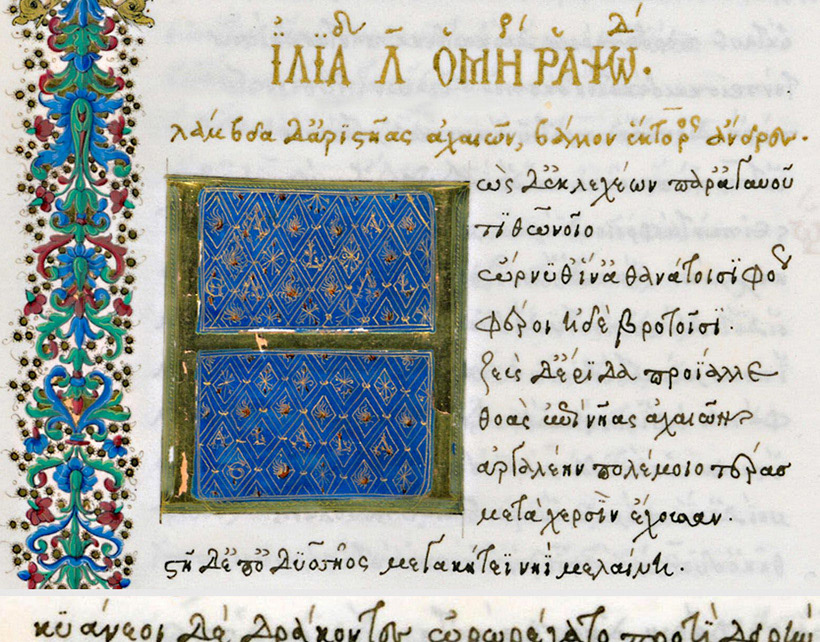 ἰλιάδ λ̄ ὁμήρ ῥαψωδ.
λάμβδα δ' ἀριστῆας ἀχαιῶν, βάλλον ἕκτορος ἄνδρες.
Η ὼς δ' ἐκ λεχέων παρ' ἀγαυοῦ
τιθωνοῖο
ὤρνυθ' ἵν' ἀθανάτοισι φόω
φέροι ἠδὲ βροτοῖσι.
ζεὺς δ' ἔριδα προΐαλλε
θοὰς ἐπὶ νῆας ἀχαιῶν
ἀργαλέην πολέμοιο τέρας
μετὰ χερσὶν ἔχουσαν.
στῆ δ' ἐπ' ὀδυσσῆος μεγακήτεϊ νηῒ μελαίνῃ.
κυάνεοι δὲ δράκοντες ὀρωρέχατο προτὶ δειρὴν